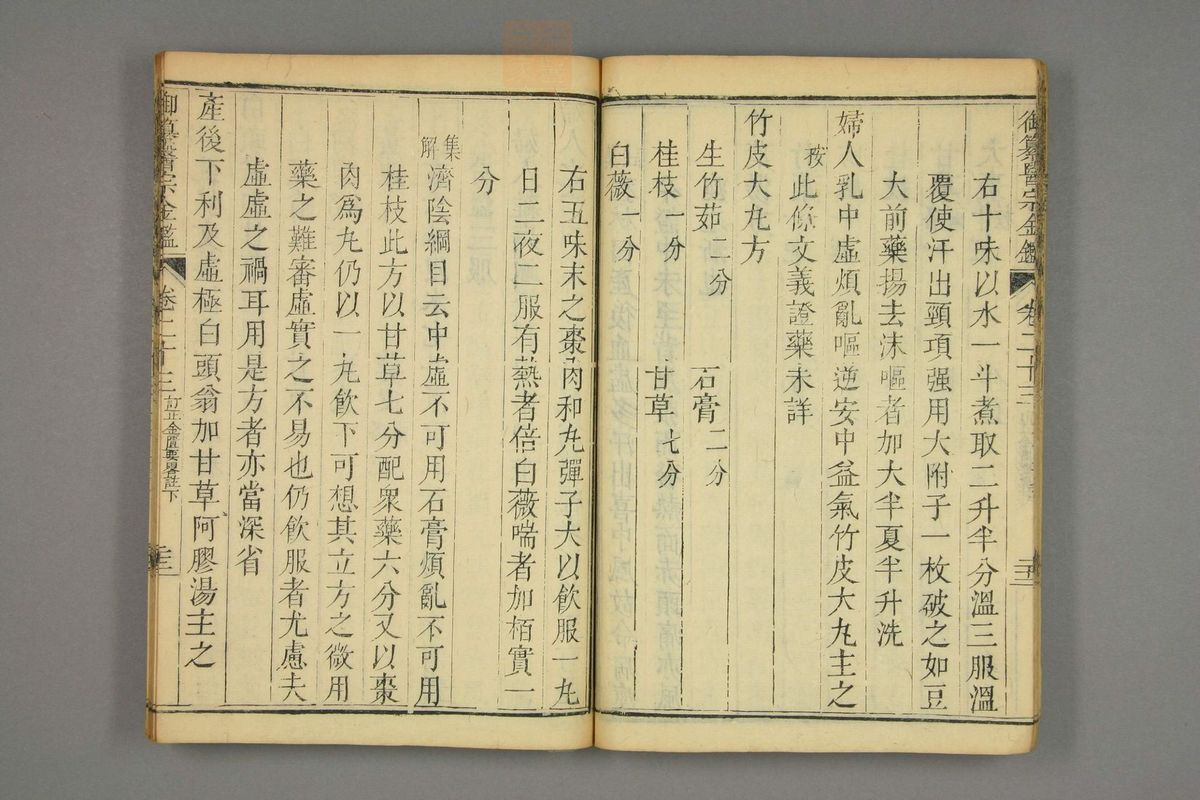 御纂醫宗金鑑 卷二十三
右十味以水一斗煮取二升半分溫三服溫
覆使汗出頸項强用大附子一枚破之如豆
大前藥揚去沫嘔者加大半夏半升洗
婦人乳中虛煩亂嘔逆安中益氣竹皮大丸主之
按此條文義證藥未詳
竹皮大丸方
生竹茹二分 石膏二分
桂枝一分 甘草七分
白薇一分
右五味末之棗肉和丸彈子大以飲服一丸
日二夜二服有熱者倍白薇喘者加栢實一
分
集解濟陰綱目云中虛不可用石膏煩亂不可用
桂枝此方以甘草七分配衆藥六分又以棗
肉爲丸仍以一丸飲下可想其立方之微用
藥之難審虛實之不易也仍飲服者尤慮夫
虛虛之禍耳用是方者亦當深省
產後下利及虛極白頭翁加甘草阿膠湯主之
御纂醫宗金鑑 卷二十三 訂正金匱要畧註下